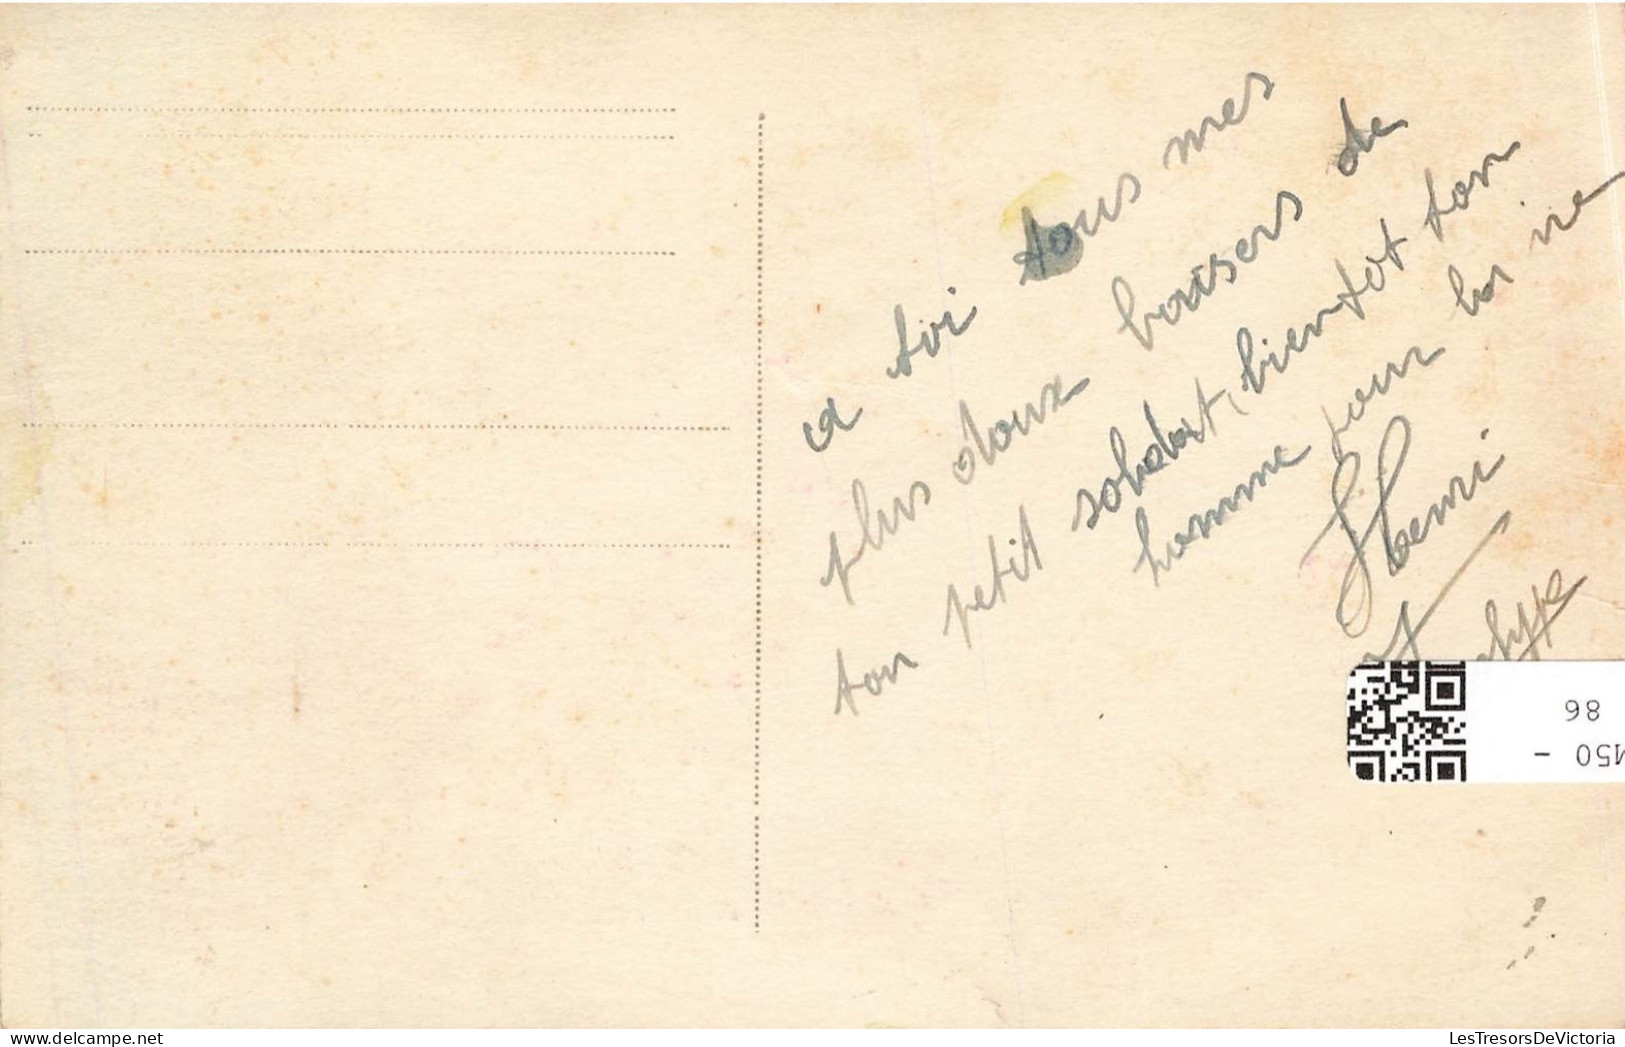 a toi tous mes
plus doux baisers de
ton petit soldat, bientot ton
homme pour la vie
Henri
86
M50 -
LesTresorsDeVictoria